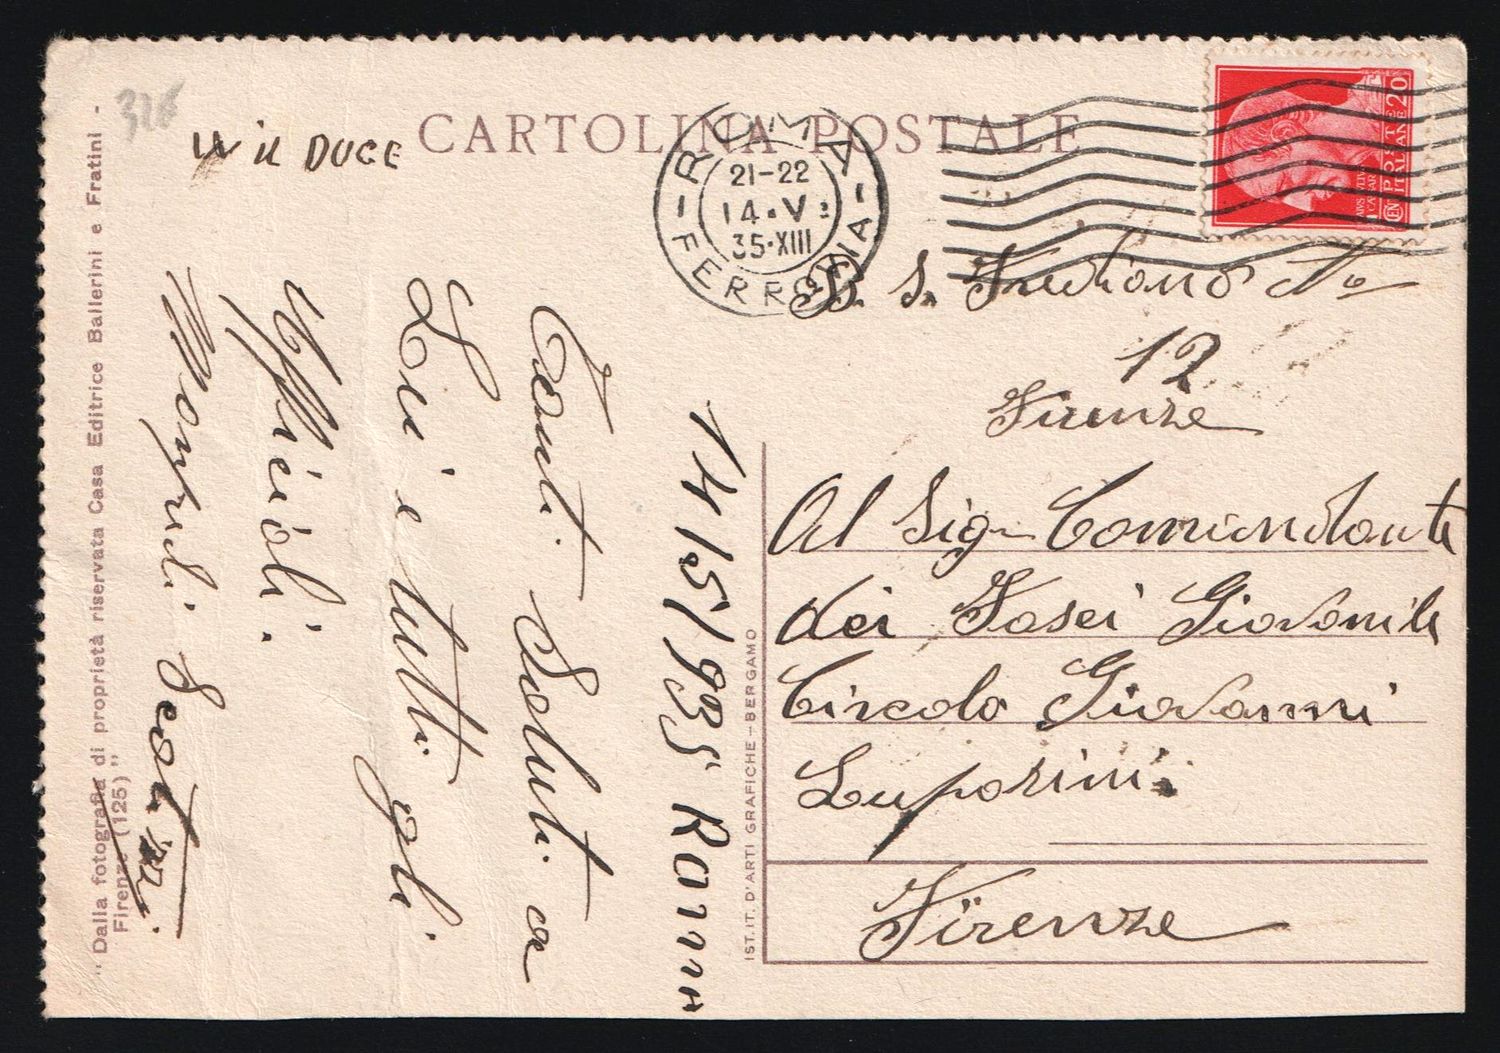 326
W il DUCE
CARTOLINA POSTALE
ROMA
21-22
14·V·
35·XIII
FERROVIA
POSTE
ITALIANE
CEN 20
B. S. Frediano No
12
Firenze
Al Sig Comandante
dei Fasci Giovanile
Circolo Giovanni
Luporini
Firenze
14/5/935 Roma
Tanti Saluti a
Lui e tutti gli
Ufficiali.
Manfredi Scotini.
"Dalla fotografia di proprietà riservata Casa Editrice Ballerini e Fratini -
Firenze (125)"
IST. IT. D'ARTI GRAFICHE – BERGAMO